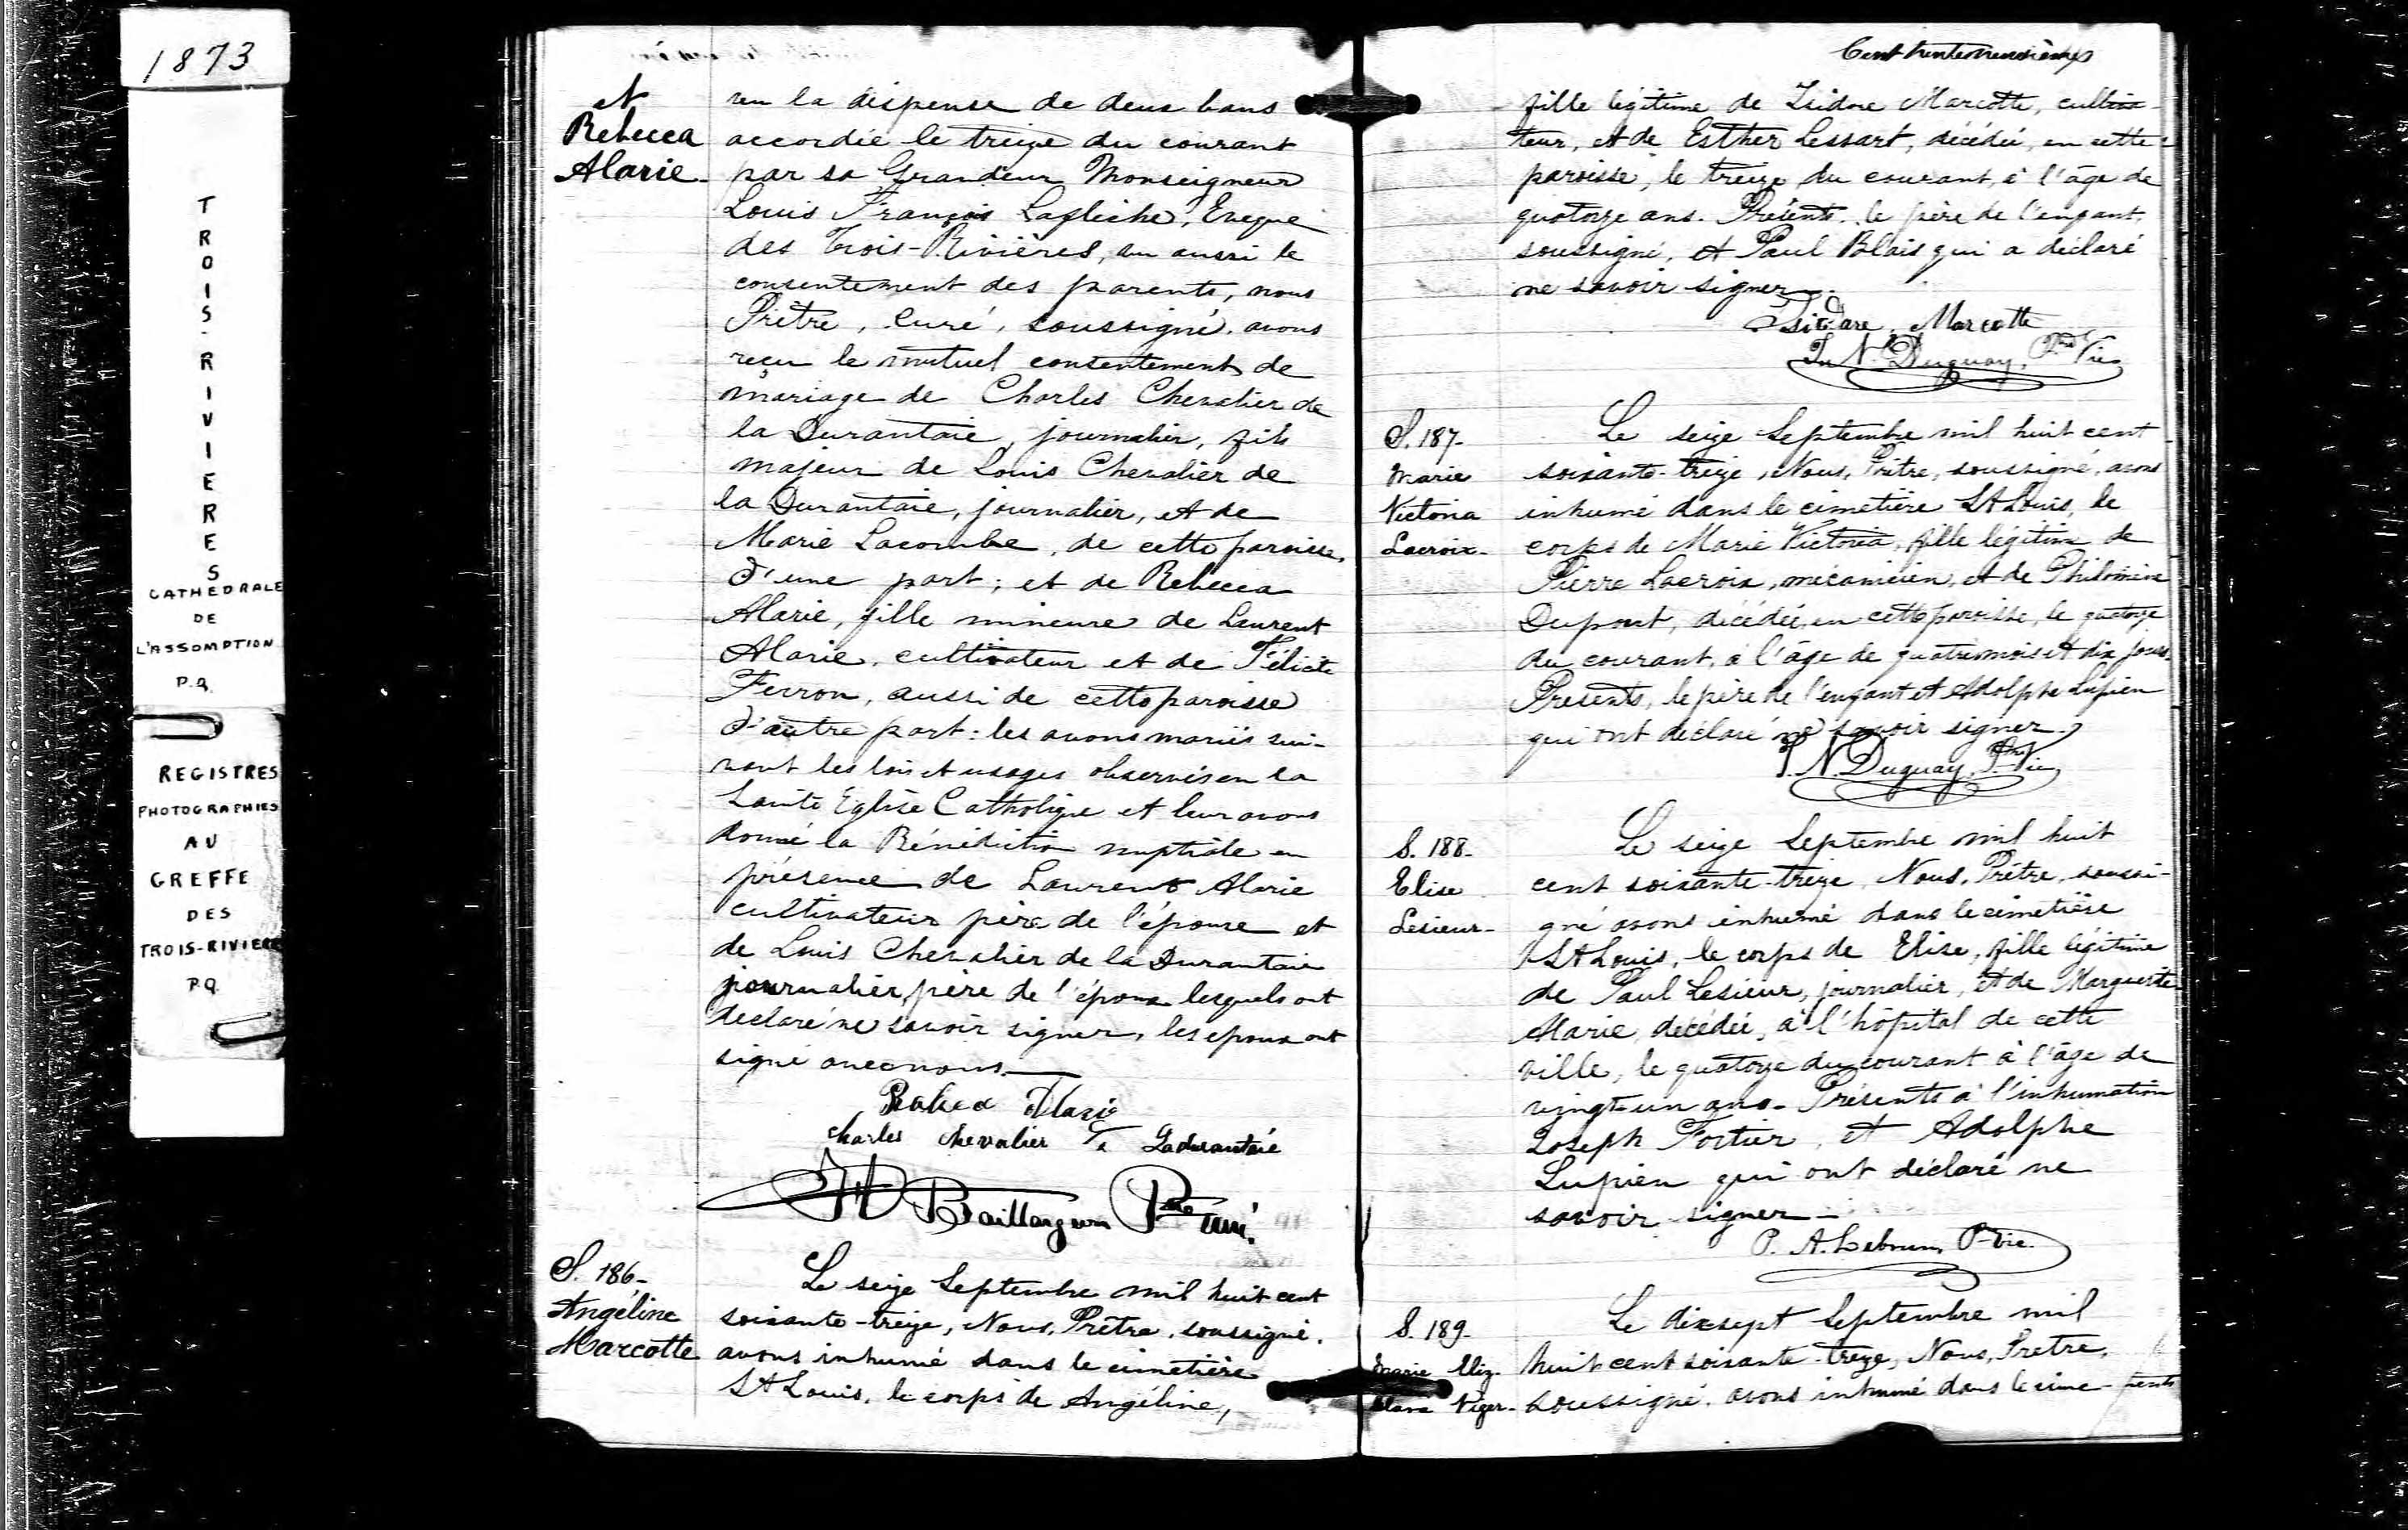 1873
TROIS-RIVIERES
CATHEDRALE
DE
L'ASSOMPTION
P.Q.
REGISTRES
PHOTOGRAPHIES
AU
GREFFE
DES
TROIS-RIVIERE
P.Q.
et
Rebecca
Alarie
vu la dispense de deux bans
accordée le treize du courant
par sa Grandeur Monseigneur
Louis François Laflèche, Evêque
des Trois-Rivières, vu aussi le
consentement des parents, nous
Prêtre, Curé, soussigné, avons
reçu le mutuel consentement de
mariage de Charles Chevalier de
la Durantaie, journalier, fils
majeur de Louis Chevalier de
la Durantaie, journalier, et de
Marie Lacombe, de cette paroisse,
d'une part; et de Rebecca
Alarie, fille mineure de Laurent
Alarie, cultivateur et de Félicité
Ferron, aussi de cette paroisse
d'autre part: les avons mariés sui-
vant les lois et usages observés en la
Sainte Eglise Catholique et leur avons
donné la Bénédiction nuptiale en
présence de Laurent Alarie
cultivateur père de l'épouse et
de Louis Chevalier de la Durantaie
journalier, père de l'époux lesquels ont
déclaré ne savoir signer, les epoux ont
signé avec nous.
Rebecca Alarie
Charles Chevalier Ladurantaie
Baillargeon Ptre curé.
S. 186-
Angéline
Marcotte
Le seize Septembre mil huit cent
soixante-treize, Nous, Prêtre, soussigné,
avons inhumé dans le cimetière
St Louis, le corps de Angéline,
Cent trente neuvième
fille légitime de Isidore Marcotte, cultiva-
teur, et de Esther Lessart, décédée, en cette
paroisse, le treize du courant, à l'âge de
quatorze ans. Présents, le père de l'enfant,
soussigné, et Paul Blais qui a déclaré
ne savoir signer.
Isidore Marcotte
J. N. Duguay, Ptre Vic
S. 187-
Marie
Victoria
Lacroix-
Le seize Septembre mil huit cent
soixante-treize, Nous, Prêtre, soussigné, avons
inhumé dans le cimetière St Louis, le
corps de Marie Victoria, fille légitime de
Pierre Lacroix, mécanicien, et de Philomène
Dupont, décédée, en cette paroisse, le quatorze
du courant, à l'âge de quatre mois et dix jours.
Présents, le père de l'enfant et Adolphe Lupien
qui ont déclaré ne savoir signer.
J. N. Duguay, Ptre Vic
S. 188-
Elise
Lesieur-
Le seize Septembre mil huit
cent soixante-treize, Nous, Prêtre, soussi-
gné avons inhumé dans le cimetière
St Louis, le corps de Elise, fille légitime
de Paul Lesieur, journalier, et de Marguerite
Alarie, décédée, à l'hôpital de cette
ville, le quatorze du courant à l'âge de
vingt-un ans- Présents à l'inhumation
Joseph Fortier, et Adolphe
Lupien qui ont déclaré ne
savoir signer-
P. A. Lebrun, P-Vic.
S. 189-
Marie Eliz-
Niger-
Le dix-sept Septembre mil
huit cent soixante-treize, Nous, Prêtre,
soussigné, avons inhumé dans le cime-